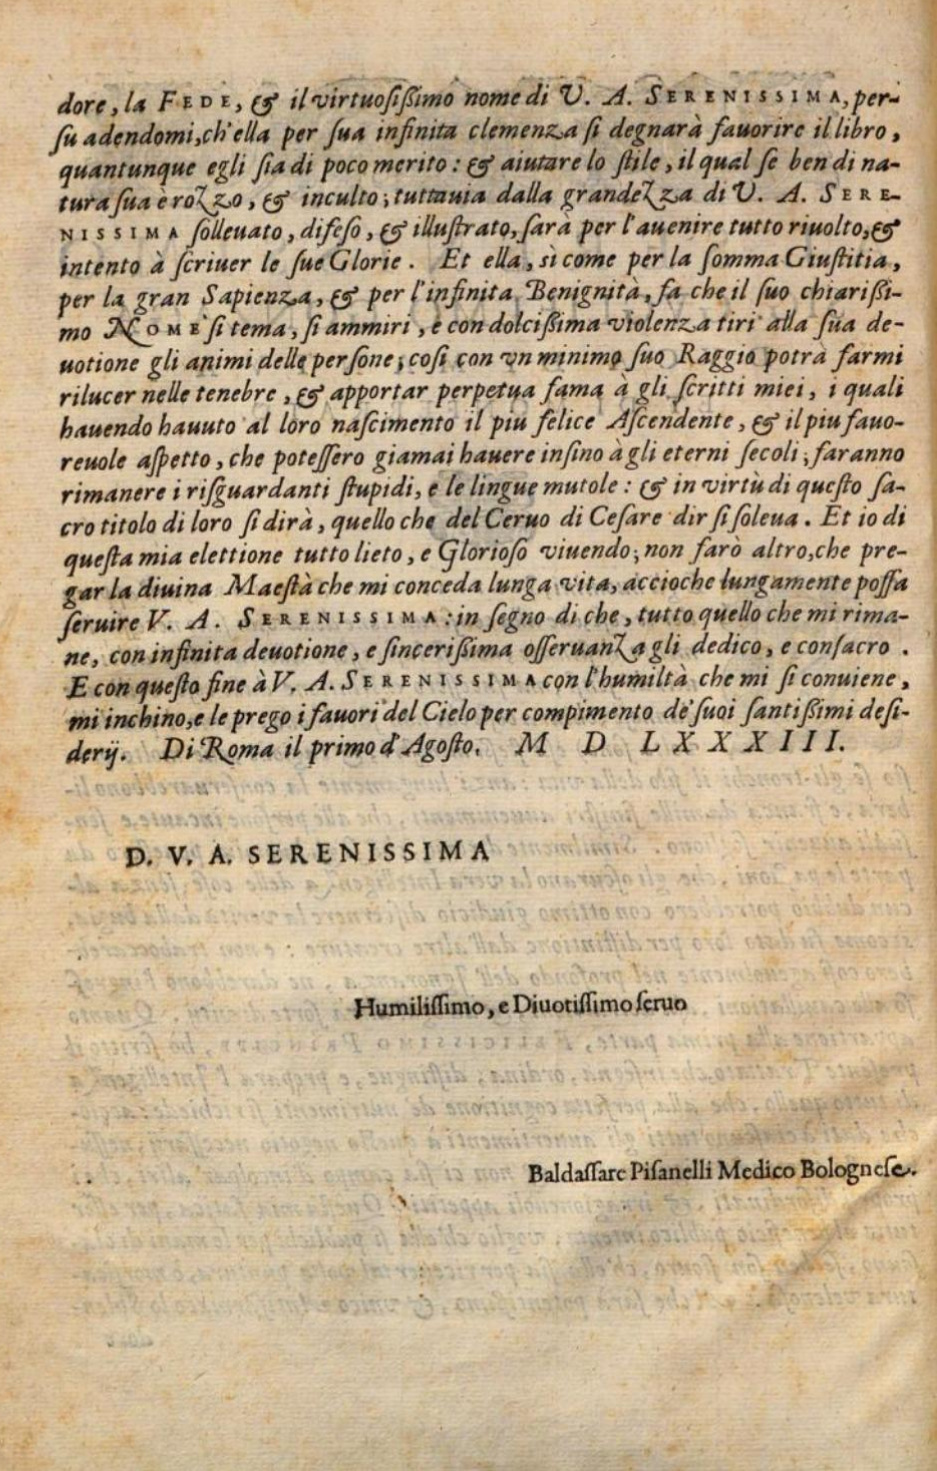 dore, la FEDE, & il virtuosißimo nome di V. A. SERENISSIMA, per-
suadendomi, ch'ella per sua infinita clemenza si degnarà fauorire il libro,
quantunque egli sia di poco merito: & aiutare lo stile, il qual se ben di na-
tura sua è rozzo, & inculto; tuttauia dalla grandezza di V. A. SERE-
NISSIMA solleuato, difeso, & illustrato, sarà per l'auenire tutto riuolto, &
intento à scriuer le sue Glorie. Et ella, sì come per la somma Giustitia,
per la gran Sapienza, & per l'infinita Benignità, fa che il suo chiarißi-
mo NOME si tema, si ammiri, e con dolcißima violenza tiri alla sua de-
uotione gli animi delle persone; così con vn minimo suo Raggio potrà farmi
rilucer nelle tenebre, & apportar perpetua fama à gli scritti miei, i quali
hauendo hauuto al loro nascimento il piu felice Ascendente, & il piu fauo-
reuole aspetto, che potessero giamai hauere insino à gli eterni secoli; faranno
rimanere i risguardanti stupidi, e le lingue mutole: & in virtù di questo sa-
cro titolo di loro si dirà, quello che del Ceruo di Cesare dir si soleua. Et io di
questa mia elettione tutto lieto, e Glorioso viuendo; non farò altro, che pre-
gar la diuina Maestà che mi conceda lunga vita, accioche lungamente possa
seruire V. A. SERENISSIMA: in segno di che, tutto quello che mi rima-
ne, con infinita deuotione, e sincerißima osseruanza gli dedico, e consacro.
E con questo fine à V. A. SERENISSIMA con l'humiltà che mi si conuiene,
mi inchino, e le prego i fauori del Cielo per compimento de' suoi santißimi desi-
derij. Di Roma il primo d'Agosto. M D LXXXIII.
D. V. A. SERENISSIMA
Humilissimo, e Diuotissimo seruo
Baldassare Pisanelli Medico Bolognese.